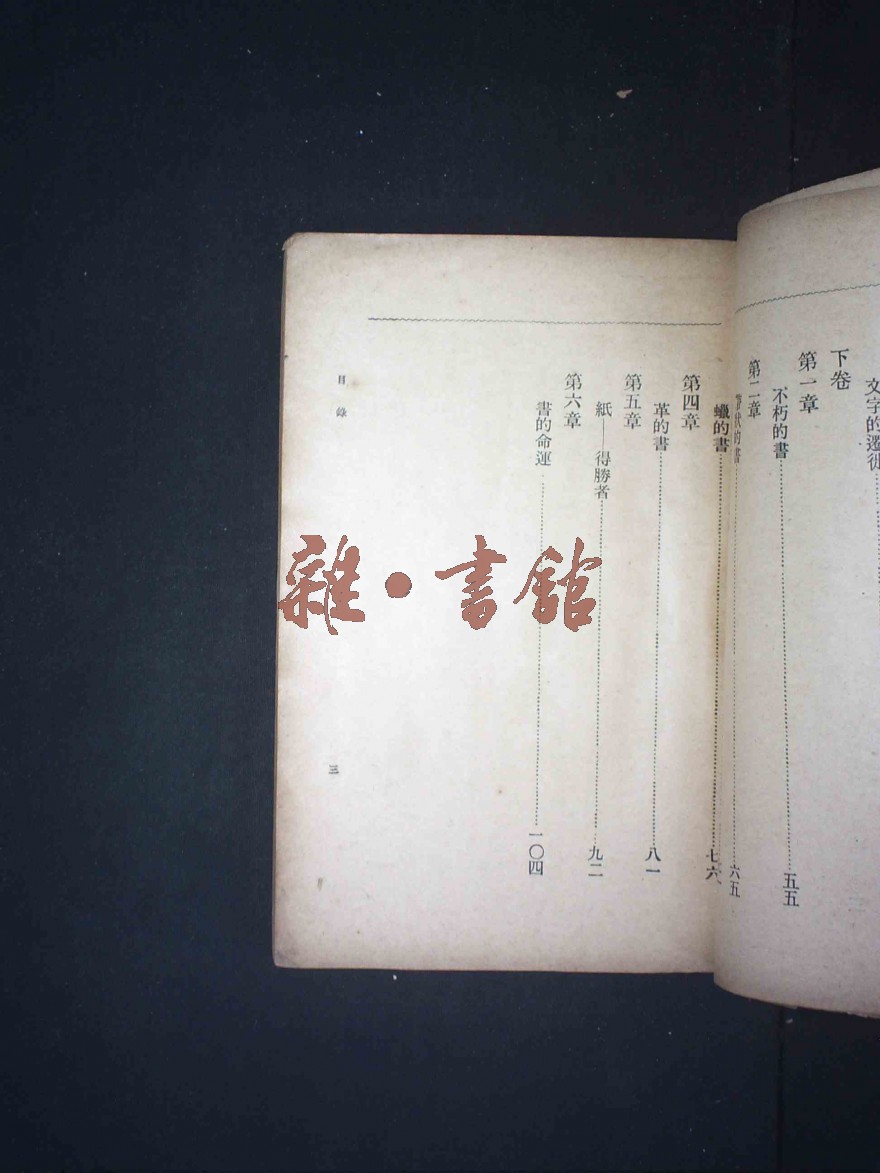 文字的遷徙
下卷
第一章
不朽的書 五五
第二章
帶狀的書 六五
蠟的書 七六
第四章
革的書 八一
第五章
紙——得勝者 九二
第六章
書的命運 一〇四
目錄
三
雜·書館